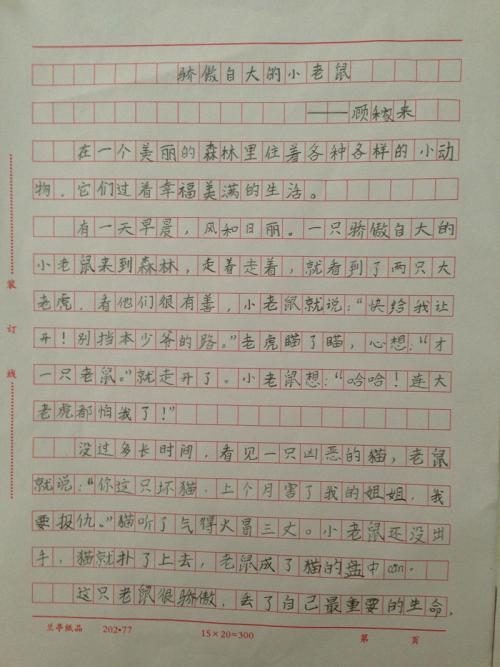 骄傲自大的小老鼠
——顾和来
在一个美丽的森林里住着各种各样的小动
物．它们过着幸福美满的生活。
有一天早晨，风和日丽。一只骄傲自大的
小老鼠来到森林，走着走着，就看到了两只大
老虎．看他们很有善，小老鼠就说：“快给我让
开！别挡本少爷的路。”老虎瞄了瞄，心想：“才
一只老鼠。”就走开了。小老鼠想：“哈哈！连大
老虎都怕我了！”
没过多长时间，看见一只凶恶的猫，老鼠
就说：“你这只坏猫．上个月害了我的姐姐．我
要报仇。”猫听了气得火冒三丈。小老鼠还没出
手，猫就扑了上去，老鼠成了猫的盘中cān．
这只老鼠很骄傲，丢了自己最重要的生命，
装
订
线
兰亭纸品 202•77 15×20=300 第 页